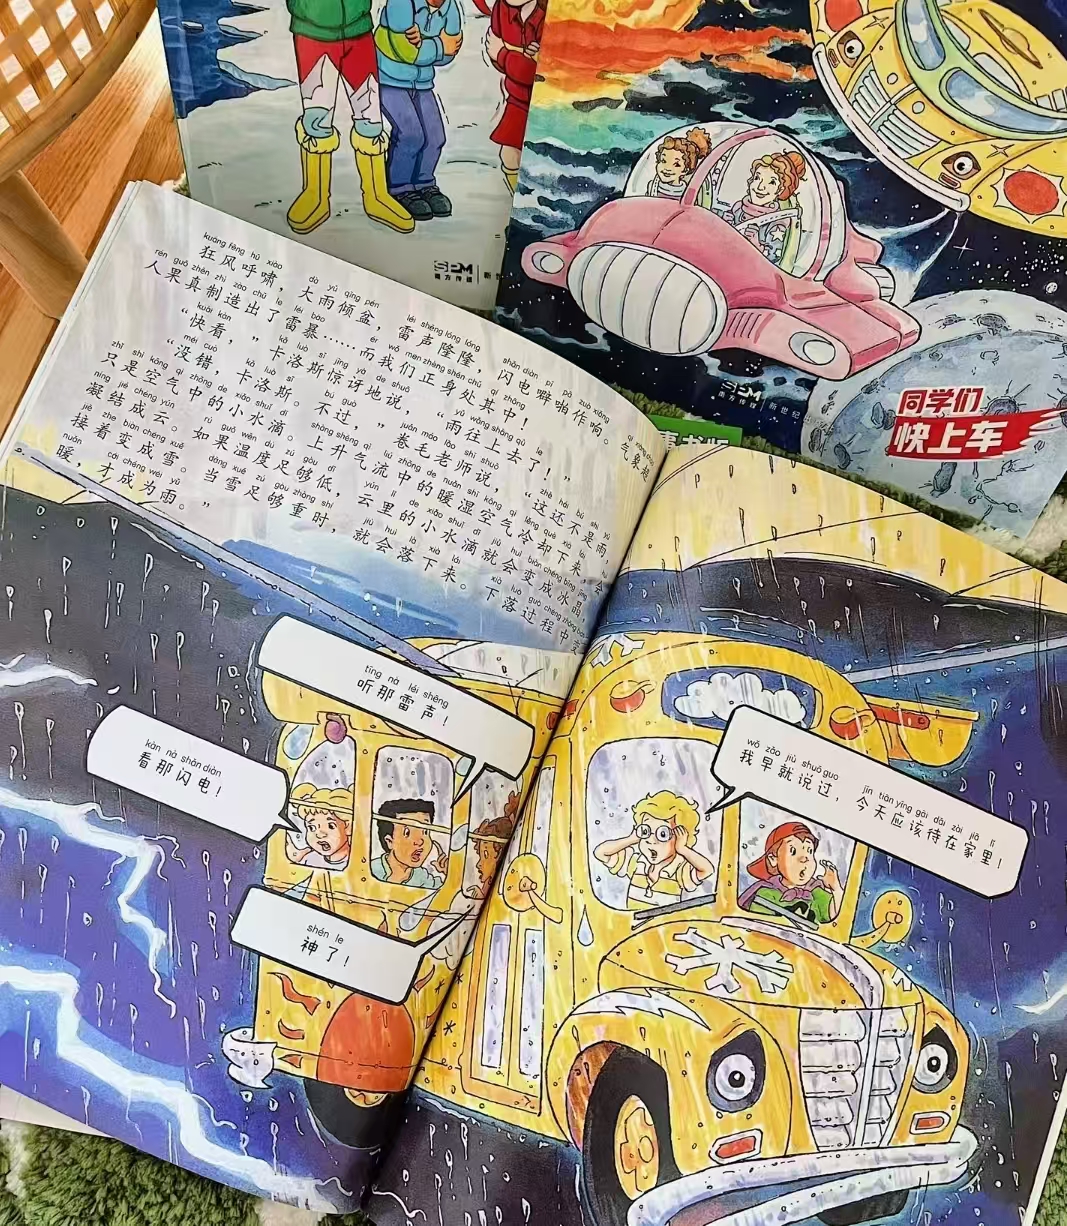 SPM
南方传媒
SPM
南方传媒 新世纪
同学们
快上车
kuáng fēng hū xiào dà yǔ qīng pén léi shēng lóng lóng shǎn diàn pī pā zuò xiǎng qì xiàng chāo
狂风呼啸，大雨倾盆，雷声隆隆，闪电噼啪作响。气象超
rén guǒ zhēn zhì zào chū le léi bào ér wǒ men zhèng shēn chǔ qí zhōng
人果真制造出了雷暴……而我们正身处其中！
kuài kàn kǎ luò sī jīng yà de shuō yǔ wǎng shàng qù le
“快看，”卡洛斯惊讶地说，“雨往上去了！”
méi cuò kǎ luò sī bú guò juǎn máo lǎo shī shuō zhè hái bú shì yǔ
“没错，卡洛斯。不过，”卷毛老师说，“这还不是雨，
zhǐ shì kōng qì zhōng de xiǎo shuǐ dī shàng shēng qì liú zhōng de nuǎn shī kōng qì lěng què xià lái huì
只是空气中的小水滴。上升气流中的暖湿空气冷却下来，会
níng jié chéng yún rú guǒ wēn dù zú gòu dī yún lǐ de xiǎo shuǐ dī jiù huì biàn chéng bīng jīng
凝结成云。如果温度足够低，云里的小水滴就会变成冰晶，
jiē zhe biàn chéng xuě dāng xuě zú gòu zhòng shí jiù huì là xià lái xià luò guò chéng zhōng
接着变成雪。当雪足够重时，就会落下来。下落过程中
nuǎn cái chéng wéi yǔ
暖，才成为雨。”
tīng nà léi shēng
听那雷声！
kàn nà shǎn diàn
看那闪电！
shén le
神了！
wǒ zǎo jiù shuō guo jīn tiān yīng gāi dāi zài jiā lǐ
我早就说过，今天应该待在家里！